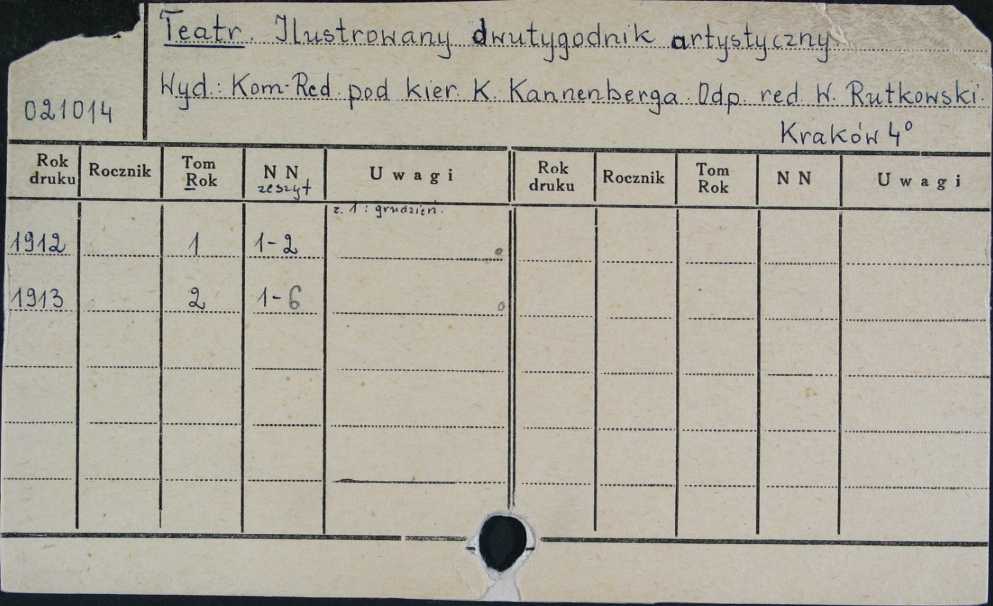 Teatr. Ilustrowany dwutygodnik artystyczny
Wyd.: Kom-Red. pod kier. K. Kannenberga Odp. red W. Rutkowski.
021014
Kraków 4°
Rok druku Rocznik Tom Rok N N zeszyt Uwagi Rok druku Rocznik Tom Rok N N Uwagi
z. 1: grudzień.
1912 1 1-2
1913 2 1-6